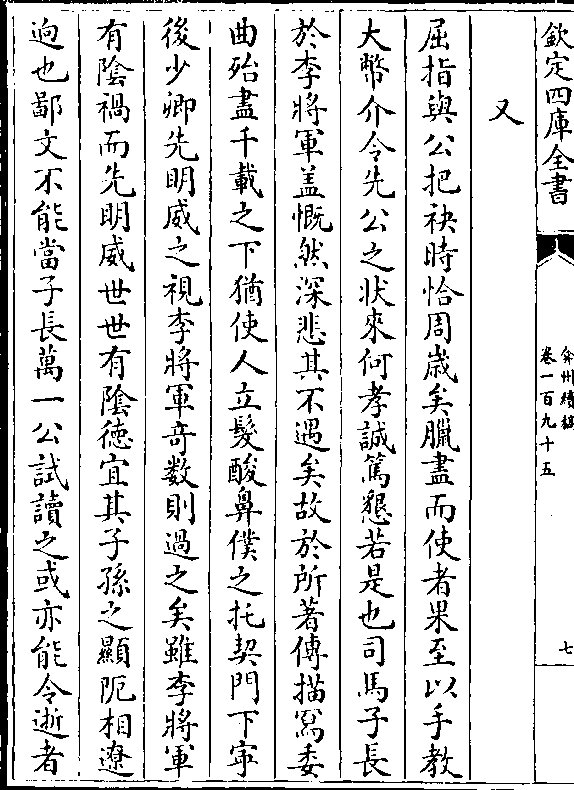 欽定四庫全書
弇州續稿
卷一百九十五
七
又
屈指與公把袂時恰周歲矣臘盡而使者果至以手教
大幣介令先公之狀來何孝誠篤懇若是也司馬子長
於李將軍盖慨然深悲其不遇矣故於所著傳描寫委
曲殆盡千載之下猶使人立髮酸鼻僕之托契門下寕
後少卿先明威之視李將軍竒數則過之矣雖李將軍
有陰禍而先明威世世有陰德宜其子孫之顯阨相遼
逈也鄙文不能當子長萬一公試讀之或亦能令逝者